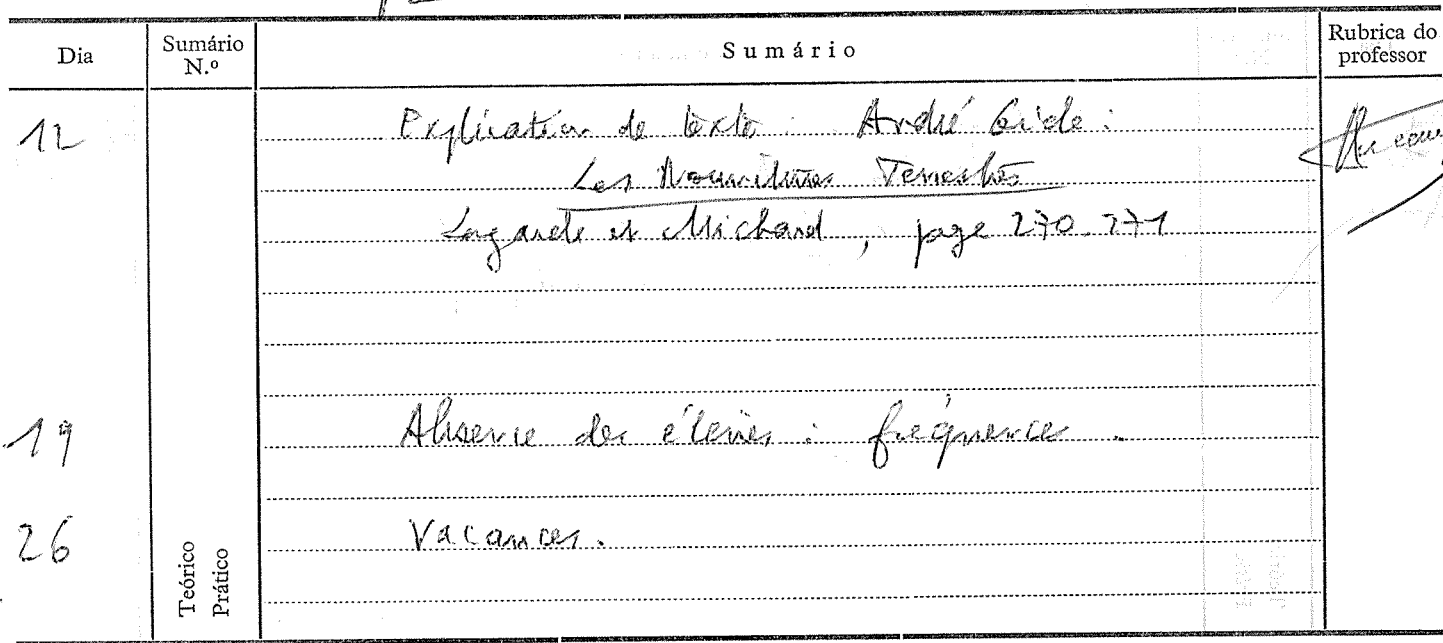 Dia
Sumário N.º
Sumário
Rubrica do professor
12
Explication de texte : André Gide :
Les Nourritures Terrestres
Lagarde et Michard, page 270-271
19
Absence des élèves : fréquence.
26
Vacances.
Teórico
Prático